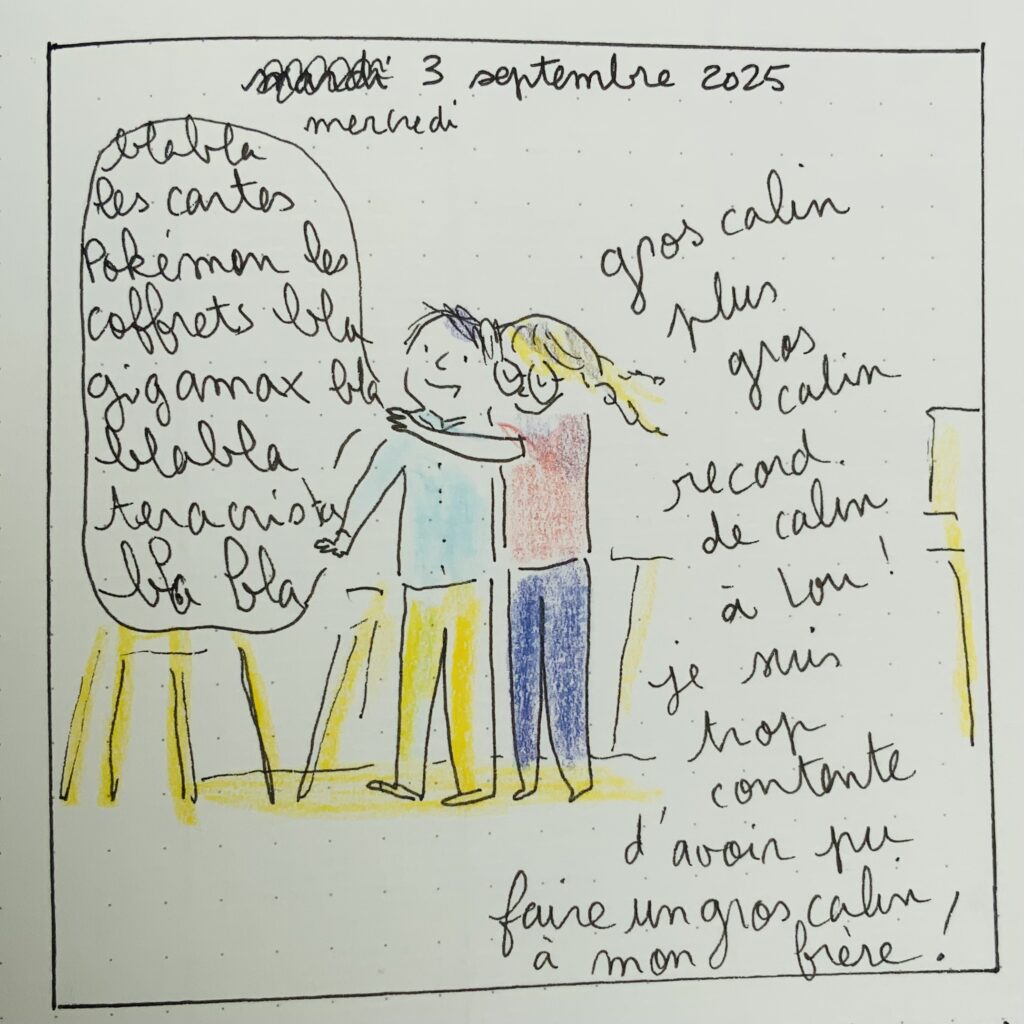 mardi 3 septembre 2025
mercredi
blabla
les cartes
Pokémon les
coffrets bla
gigamax bla
blabla
teracristal
bla bla
gros calin
plus
gros
calin
record
de calin
à Lou !
je suis
trop
contente
d'avoir pu
faire un gros calin
à mon frère !